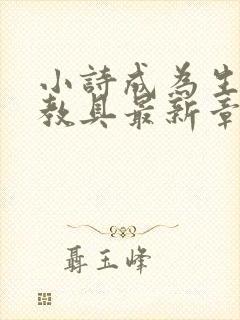 小詩成為生
教具最新章
聶玉峰